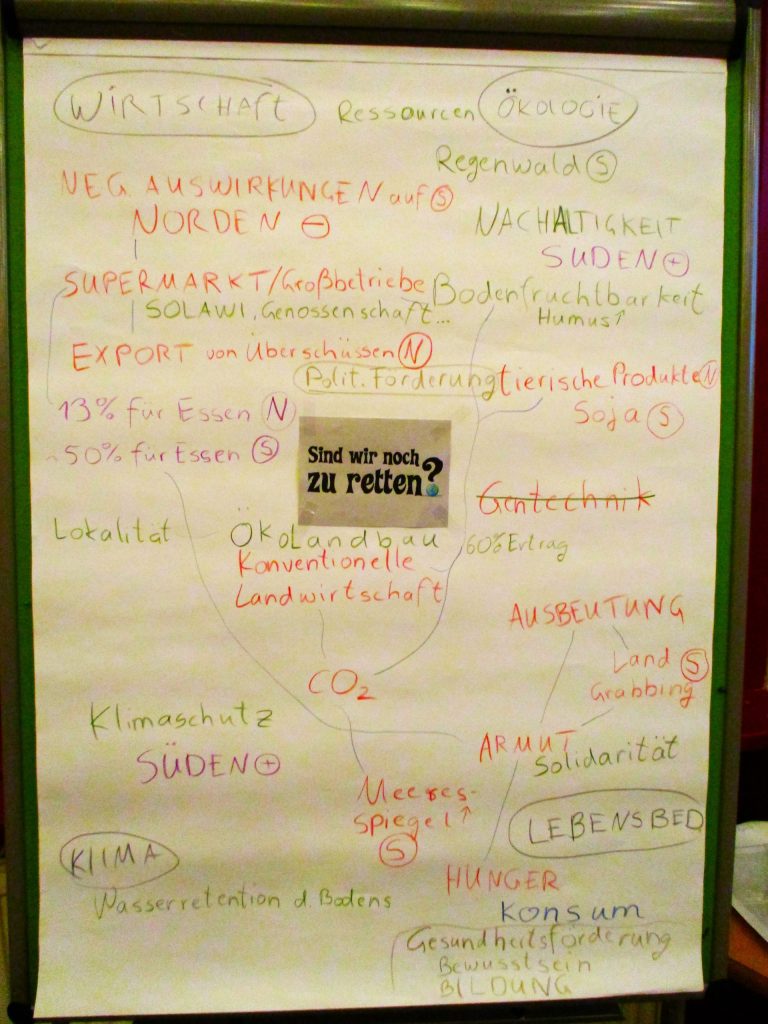 WIRTSCHAft
Ressourcen
ÖKOLOGIE
Regenwald S
NEG. AUSWIRKUNGEN auf S
NORDEN −
NACHALTIGKEIT
SÜDEN +
SUPERMARKT/Großbetriebe
Bodenfruchtbarkeit
SOLAWI, Genossenschaft...
Humus↑
EXPORT von Überschüssen N
Polit. Förderung
tierische Produkte N
13% für Essen N
Soja S
~50% für Essen S
Sind wir noch
zu retten?
Gentechnik
Lokalität
ÖKoLandbau
60% Ertrag
Konventionelle
Landwirtschaft
AUSBEUTUNG
Land S
Grabbing
CO2
Klimaschutz
ARMUT
Solidarität
SÜDEN +
Meeres-
spiegel↑
S
LEBENSBED
KlIMA
HUNGER
Wasserretention d. Bodens
Konsum
Gesundheitsförderung
Bewusstsein
BILDUNG